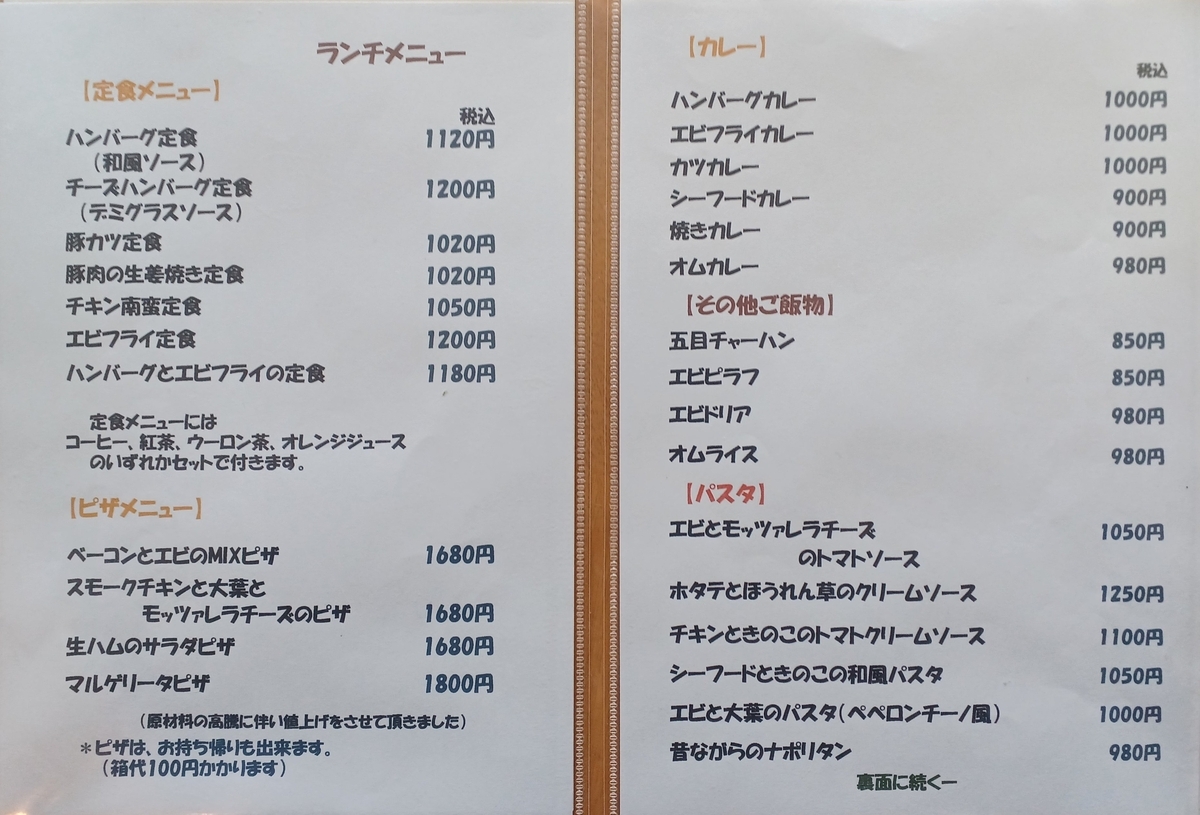 ランチメニュー
【定食メニュー】
税込
ハンバーグ定食 1120円
（和風ソース）
チーズハンバーグ定食 1200円
（デミグラスソース）
豚カツ定食 1020円
豚肉の生姜焼き定食 1020円
チキン南蛮定食 1050円
エビフライ定食 1200円
ハンバーグとエビフライの定食 1180円
定食メニューには
コーヒー、紅茶、ウーロン茶、オレンジジュース
のいずれかセットで付きます。
【ピザメニュー】
ベーコンとエビのMIXピザ 1680円
スモークチキンと大葉と
モッツァレラチーズのピザ 1680円
生ハムのサラダピザ 1680円
マルゲリータピザ 1800円
（原材料の高騰に伴い値上げをさせて頂きました）
＊ピザは、お持ち帰りも出来ます。
（箱代100円かかります）
【カレー】
税込
ハンバーグカレー 1000円
エビフライカレー 1000円
カツカレー 1000円
シーフードカレー 900円
焼きカレー 900円
オムカレー 980円
【その他ご飯物】
五目チャーハン 850円
エビピラフ 850円
エビドリア 980円
オムライス 980円
【パスタ】
エビとモッツァレラチーズ 1050円
のトマトソース
ホタテとほうれん草のクリームソース 1250円
チキンときのこのトマトクリームソース 1100円
シーフードときのこの和風パスタ 1050円
エビと大葉のパスタ（ペペロンチーノ風） 1000円
昔ながらのナポリタン 980円
裏面に続くー